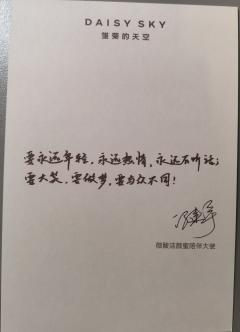 DAISY SKY
雏菊的天空
要永远年轻,永远热情,永远不听话;
要大笑,要做梦,要与众不同!
微酸洁颜蜜陪伴大使